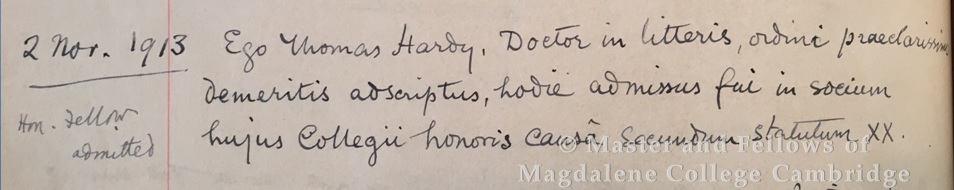 2 Nov. 1913 Ego Thomas Hardy, Doctor in litteris, ordini praeclarissimo
demeritis adscriptus, hodie admissus fui in socium
Hon. Fellow
admitted
hujus Collegii honoris causâ secundum statutum XX.
© Master and Fellows of
Magdalene College Cambridge